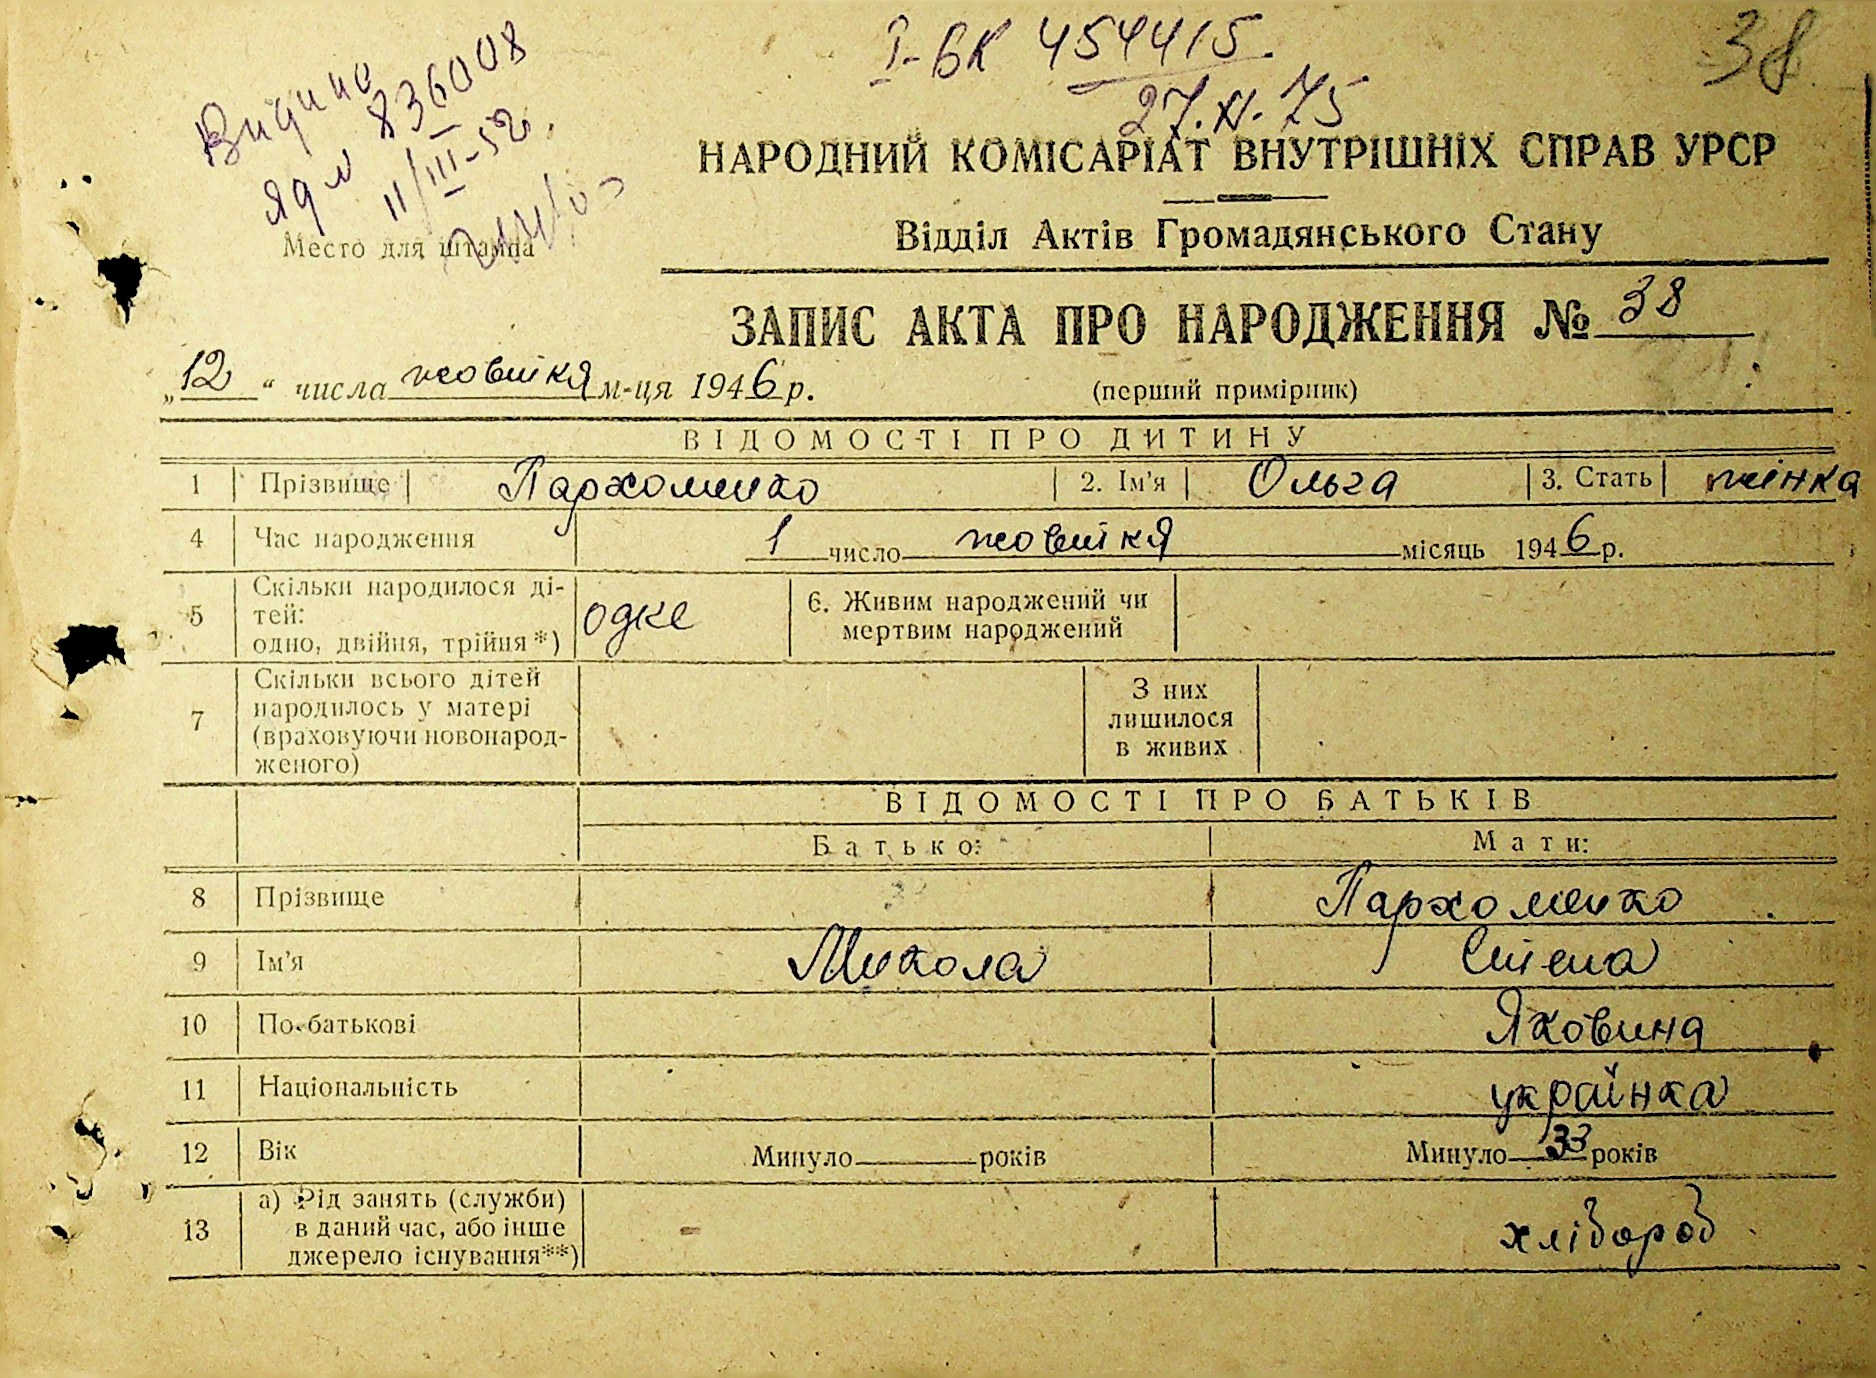 Видано
ЯД № 836008
11/III-52.
I-БК 454415.
27.XI.75
38
НАРОДНИЙ КОМІСАРІАТ ВНУТРІШНІХ СПРАВ УРСР
Место для штампа
Відділ Актів Громадянського Стану
ЗАПИС АКТА ПРО НАРОДЖЕННЯ № 38
„12“ числа жовтня м-ця 1946 р. (перший примірник)
ВІДОМОСТІ ПРО ДИТИНУ
1 Прізвище Пархоменко 2. Ім'я Ольга 3. Стать жінка
4 Час народження 1 число жовтня місяць 1946 р.
5 Скільки народилося ді-
тей:
одно, двійня, трійня*) одне 6. Живим народжений чи
мертвим народжений
7 Скільки всього дітей
народилось у матері
(враховуючи новонарод-
женого)
З них
лишилося
в живих
ВІДОМОСТІ ПРО БАТЬКІВ
Батько: Мати:
8 Прізвище Пархоменко
9 Ім'я Микола Степа
10 По-батькові Яковина
11 Національність українка
12 Вік Минуло років Минуло 33 років
13 а) Рід занять (служби)
в даний час, або інше
джерело існування**) хлібороб